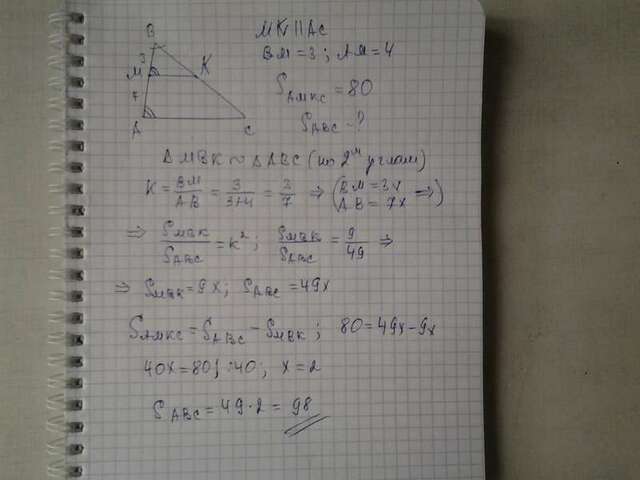 MK || AC
BM = 3 ; AM = 4
S AMKC = 80
S ABC - ?
B
3
M
K
A
C
Δ MBK ~ Δ ABC (по 2м углам)
K = BM/AB = 3/(3+4) = 3/7 ⇒ (BM = 3x AB = 7x ⇒)
⇒ S MBK / S ABC = k² ; S MBK / S ABC = 9/49 ⇒
⇒ S MBK = 9x ; S ABC = 49x
S AMKC = S ABC - S MBK ; 80 = 49x - 9x
40x = 80 | :40 ; x = 2
S ABC = 49 · 2 = 98